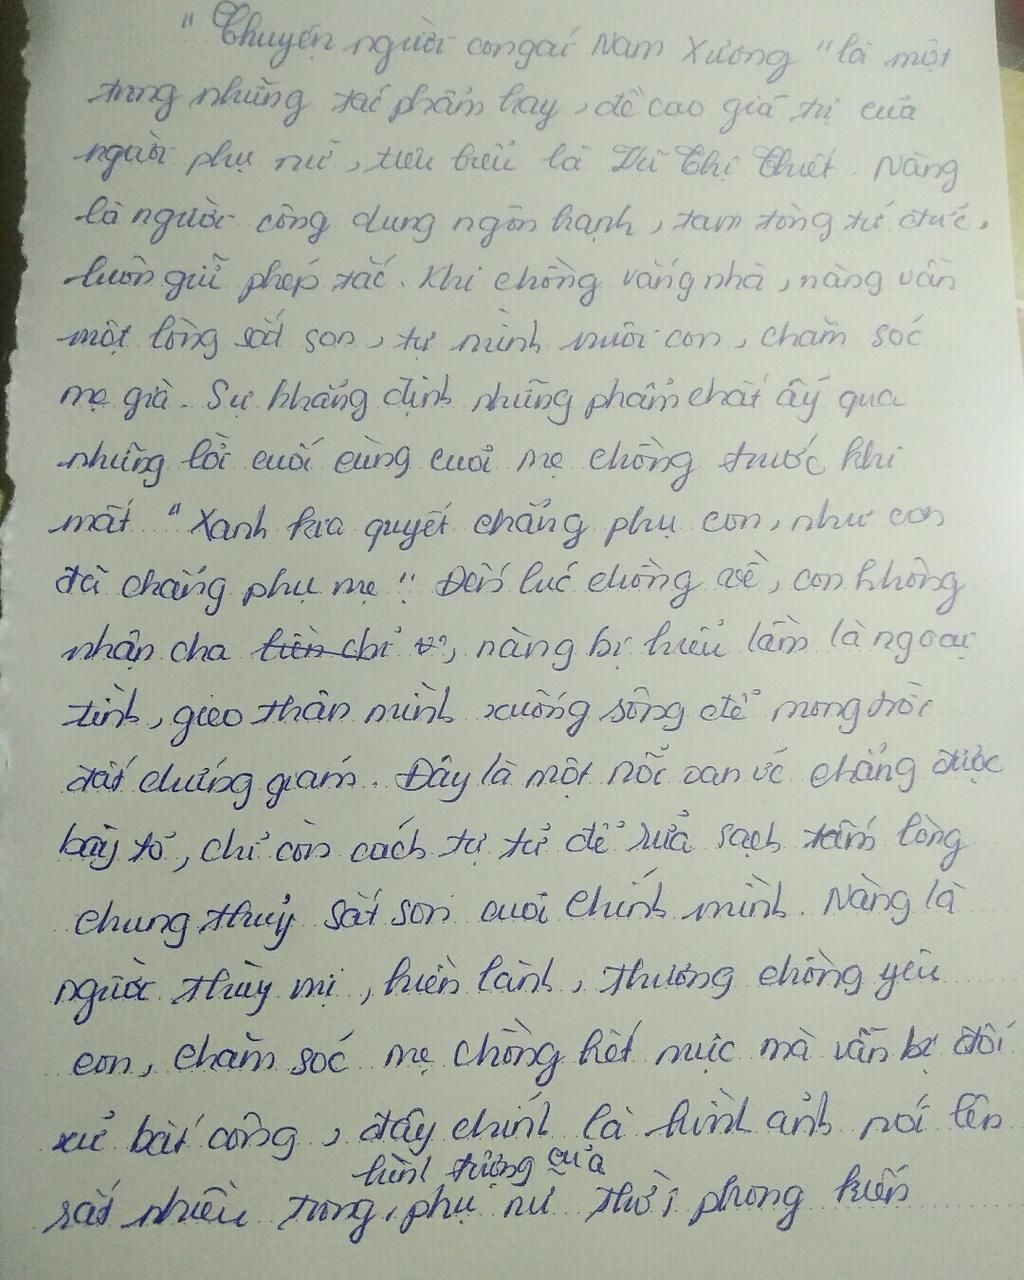 "Chuyện người con gái Nam Xương" là một
trong những tác phẩm hay, đề cao giá trị của
người phụ nữ, tiêu biểu là Vũ Thị Thiết. Nàng
là người công dung ngôn hạnh, tam tòng tứ đức,
luôn giữ phép tắc. Khi chồng vắng nhà, nàng vẫn
một lòng sắt son, tự mình nuôi con, chăm sóc
mẹ già. Sự khẳng định những phẩm chất ấy qua
những lời cuối cùng cuả mẹ chồng trước khi
mất "Xanh kia quyết chẳng phụ con, như con
đã chẳng phụ mẹ". Đến lúc chồng về, con không
nhận cha liền chỉ, nàng bị hiểu lầm là ngoại
tình, gieo thân mình xuống sông để mong trời
đất chứng giám. Đây là một nỗi oan ức chẳng được
bày tỏ, chỉ còn cách tự tử để rửa sạch tấm lòng
chung thuỷ sắt son cuả chính mình. Nàng là
người thùy mị, hiền lành, thương chồng yêu
con, chăm sóc mẹ chồng hết mực mà vẫn bị đối
xử bất công, đây chính là hình ảnh nói lên
hình tượng của
rất nhiều trong phụ nữ thời phong kiến